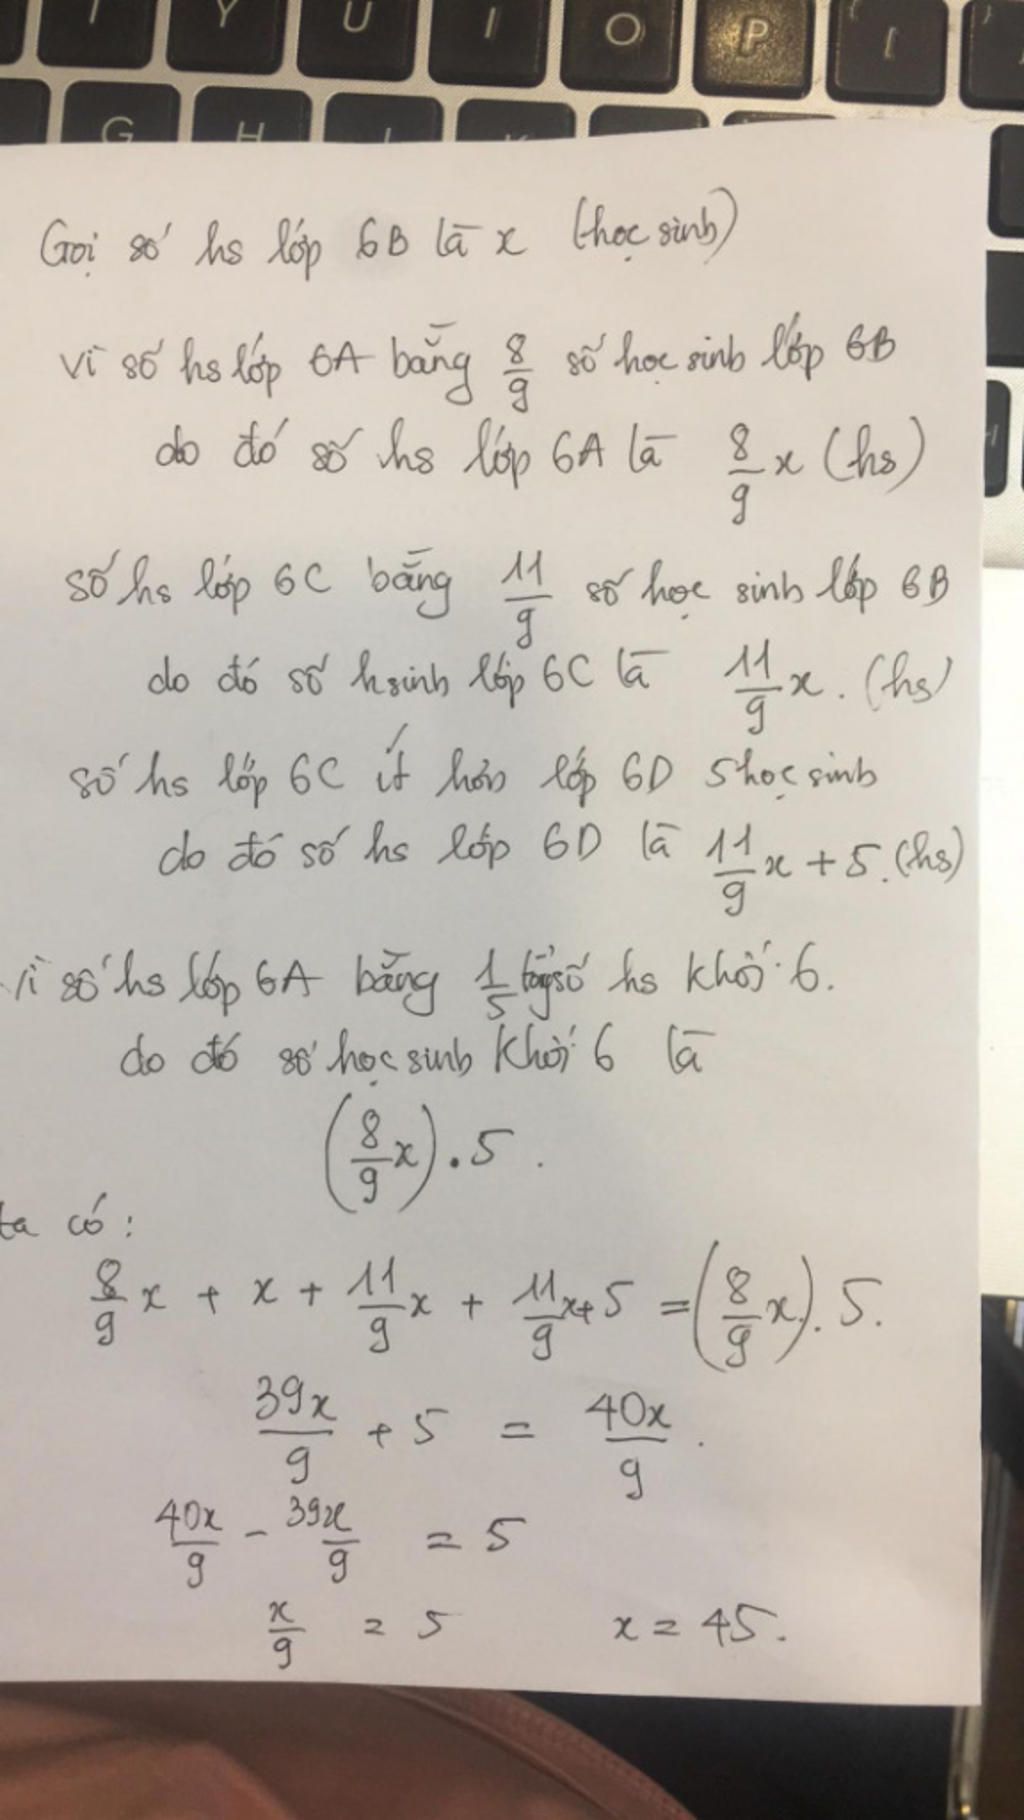 T Y U I O P { [ }
G H
Gọi số hs lớp 6B là x (học sinh)
Vì số hs lớp 6A bằng 8/9 số học sinh lớp 6B
do đó số hs lớp 6A là 8/9 x (hs)
số hs lớp 6C bằng 11/9 số học sinh lớp 6B
do đó số hsinh lớp 6C là 11/9 x. (hs)
số hs lớp 6C ít hơn lớp 6D 5 học sinh
do đó số hs lớp 6D là 11/9 x + 5. (hs)
Vì số hs lớp 6A bằng 1/5 tổng số hs khối 6.
do đó số học sinh khối 6 là
(8/9 x) . 5 .
ta có:
8/9 x + x + 11/9 x + 11/9 x + 5 = (8/9 x) . 5.
39x/9 + 5 = 40x/9 .
40x/9 - 39x/9 = 5
x/9 = 5 x = 45.